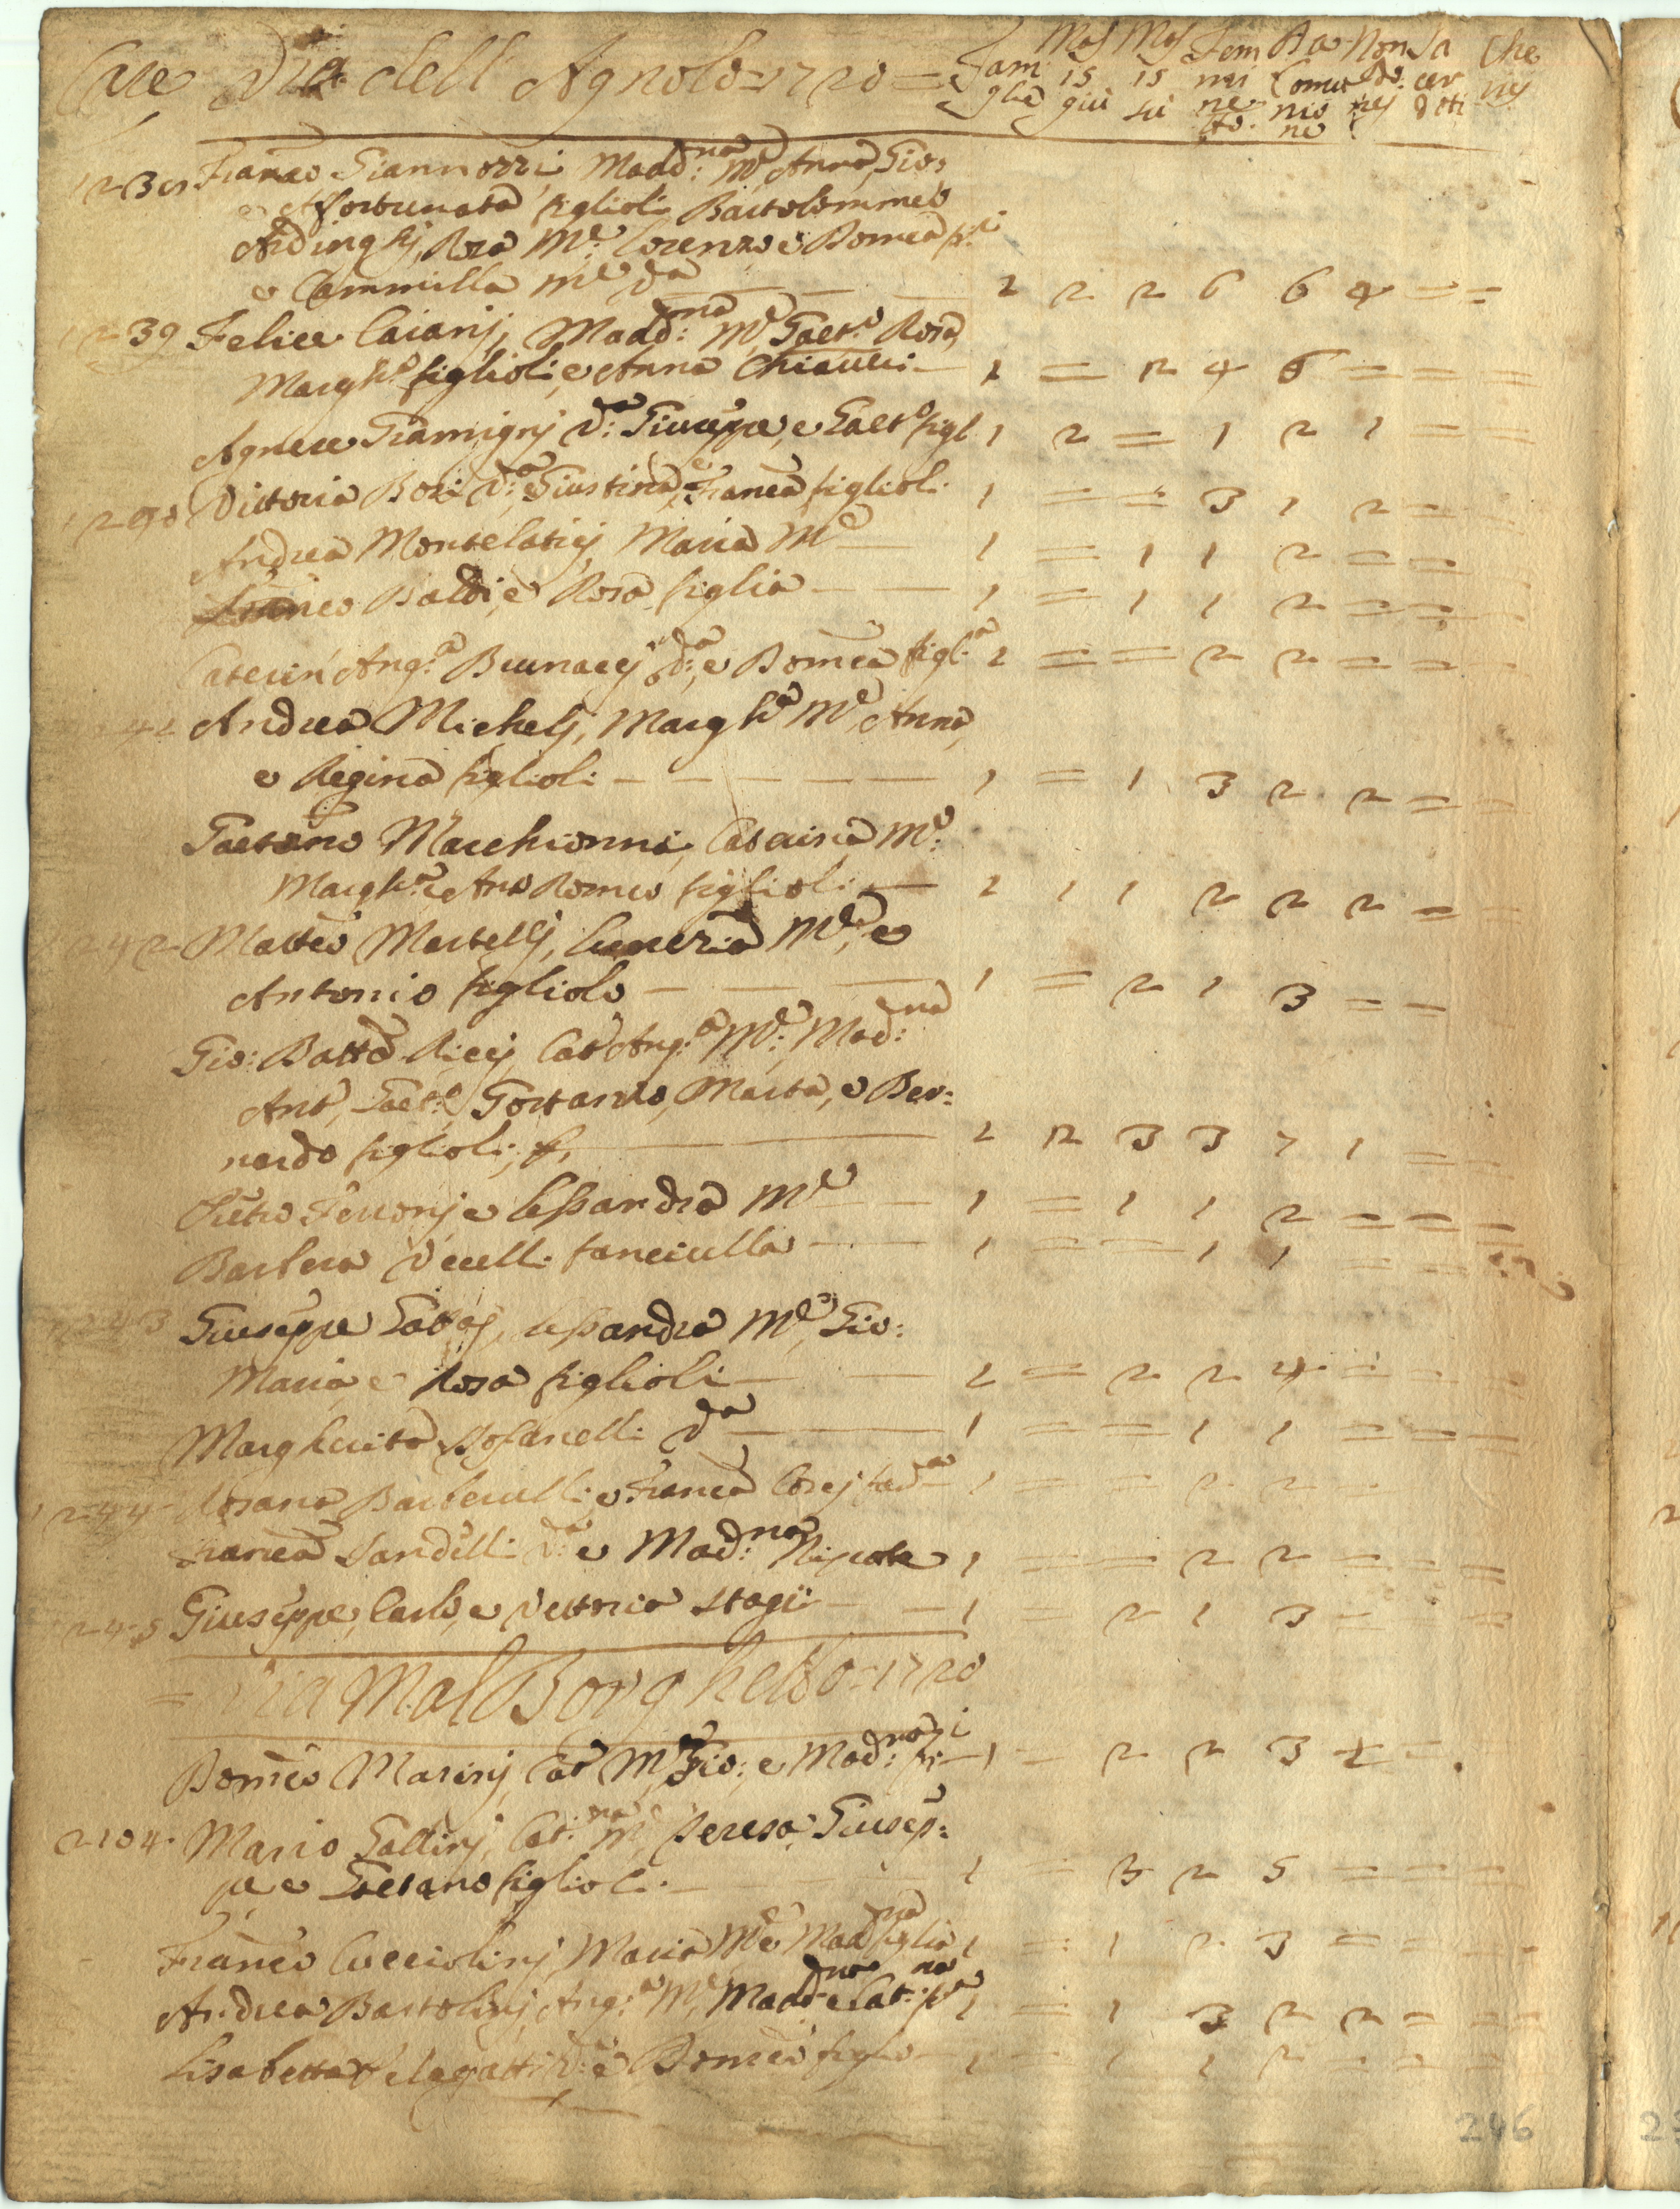 Case Via dell' Agnolo = 1720 = Fam glie Mas 15 giù Mas 15 sù Fem mi ne tto. A Comu nio ne Non Co. nej Sa cer doti Che rij
1238 Franco Giannozzi, Madd:na Me, Anna, Gio:
e Fortunata figlioli Bartolommeo
Ardinghj, Rosa Me: Lorenzo e Domca fi:li
e Cammilla Me Va — 2 2 2 6 6 4 = =
1239 Felice Caianj, Madd:na Me, Gaet:o Rosa,
Margh:a figlioli, e Anna Chiaucci — 1 = 2 4 6 = = =
Agnese Giamignj Va: Giuseppe, e Gaeto figl 1 2 = 1 2 1 = =
1240 Vittoria Bozi Va: Giustina, e Franca figlioli 1 = = 3 1 2 =
Andrea Montelaticj, Maria Me — 1 = 1 1 2 = =
Franco Baldi, e Rosa figlia — 1 = 1 1 2 = =
Caterin' Ang:a Brunaccj Va:, e Domca figl:a 1 = = 2 2 = =
1241 Andrea Michelj, Marghta Me Anna,
e Regina figlioli — 1 = 1 3 2 2 = =
Gaetano Macchionni, Catarina Me:
Margh:a e Anto Romeo figlioli — 1 1 1 2 2 2 =
1242 Matteo Martellj, Lucrezia Me:, e
Antonio figliolo — 1 = 2 1 3 = =
Gio: Batta Riccj, Cat' Ang:a Me: Mad:na
Anto, Gaet:o, Gostanza, Marta, e Ber=
nardo figlioli — 1 2 3 3 7 1 =
Pietro Ferronj e Lessandra Me — 1 = 1 1 2 = = =
Barbera Vecelli fanciulla — 1 = = 1 1 = =
1243 Giuseppe Gattaj, Lessandra Me, Gio:
Maria e Rosa figlioli — 1 = 2 2 4 =
Margherita Stefanelli Va — 1 = = 1 1 = = =
1244 Rosana Barberelli e Franca Corsj 1 = = 2 2 =
Franca Sandelli Va: e Mad:na Nipote 1 = = 2 2 = = =
1245 Giuseppe, Carlo, e Vettoria Stagii — 1 = 2 1 3 = =
= Via Mal Borghetto = 1720
Domco Marinj, Cat Me, Gio:, e Mad:na fi:li — 1 — 2 2 3 1 =
2104 Mario Gallinj, Cat:na Me, Teresa, Giusep=
pe e Gaetano figlioli — 1 = 3 2 5 = = =
Franco Cucciolinj, Maria Me e Madna figlia 1 = 1 2 3 = =
Andrea Bartolinj, Ang:a Me, Madd:na e Cat:na 1 = 1 3 2 2 = =
Lisabetta Pelagatti Va: e Domco figlio — 1 — 1 1 2 = =
246